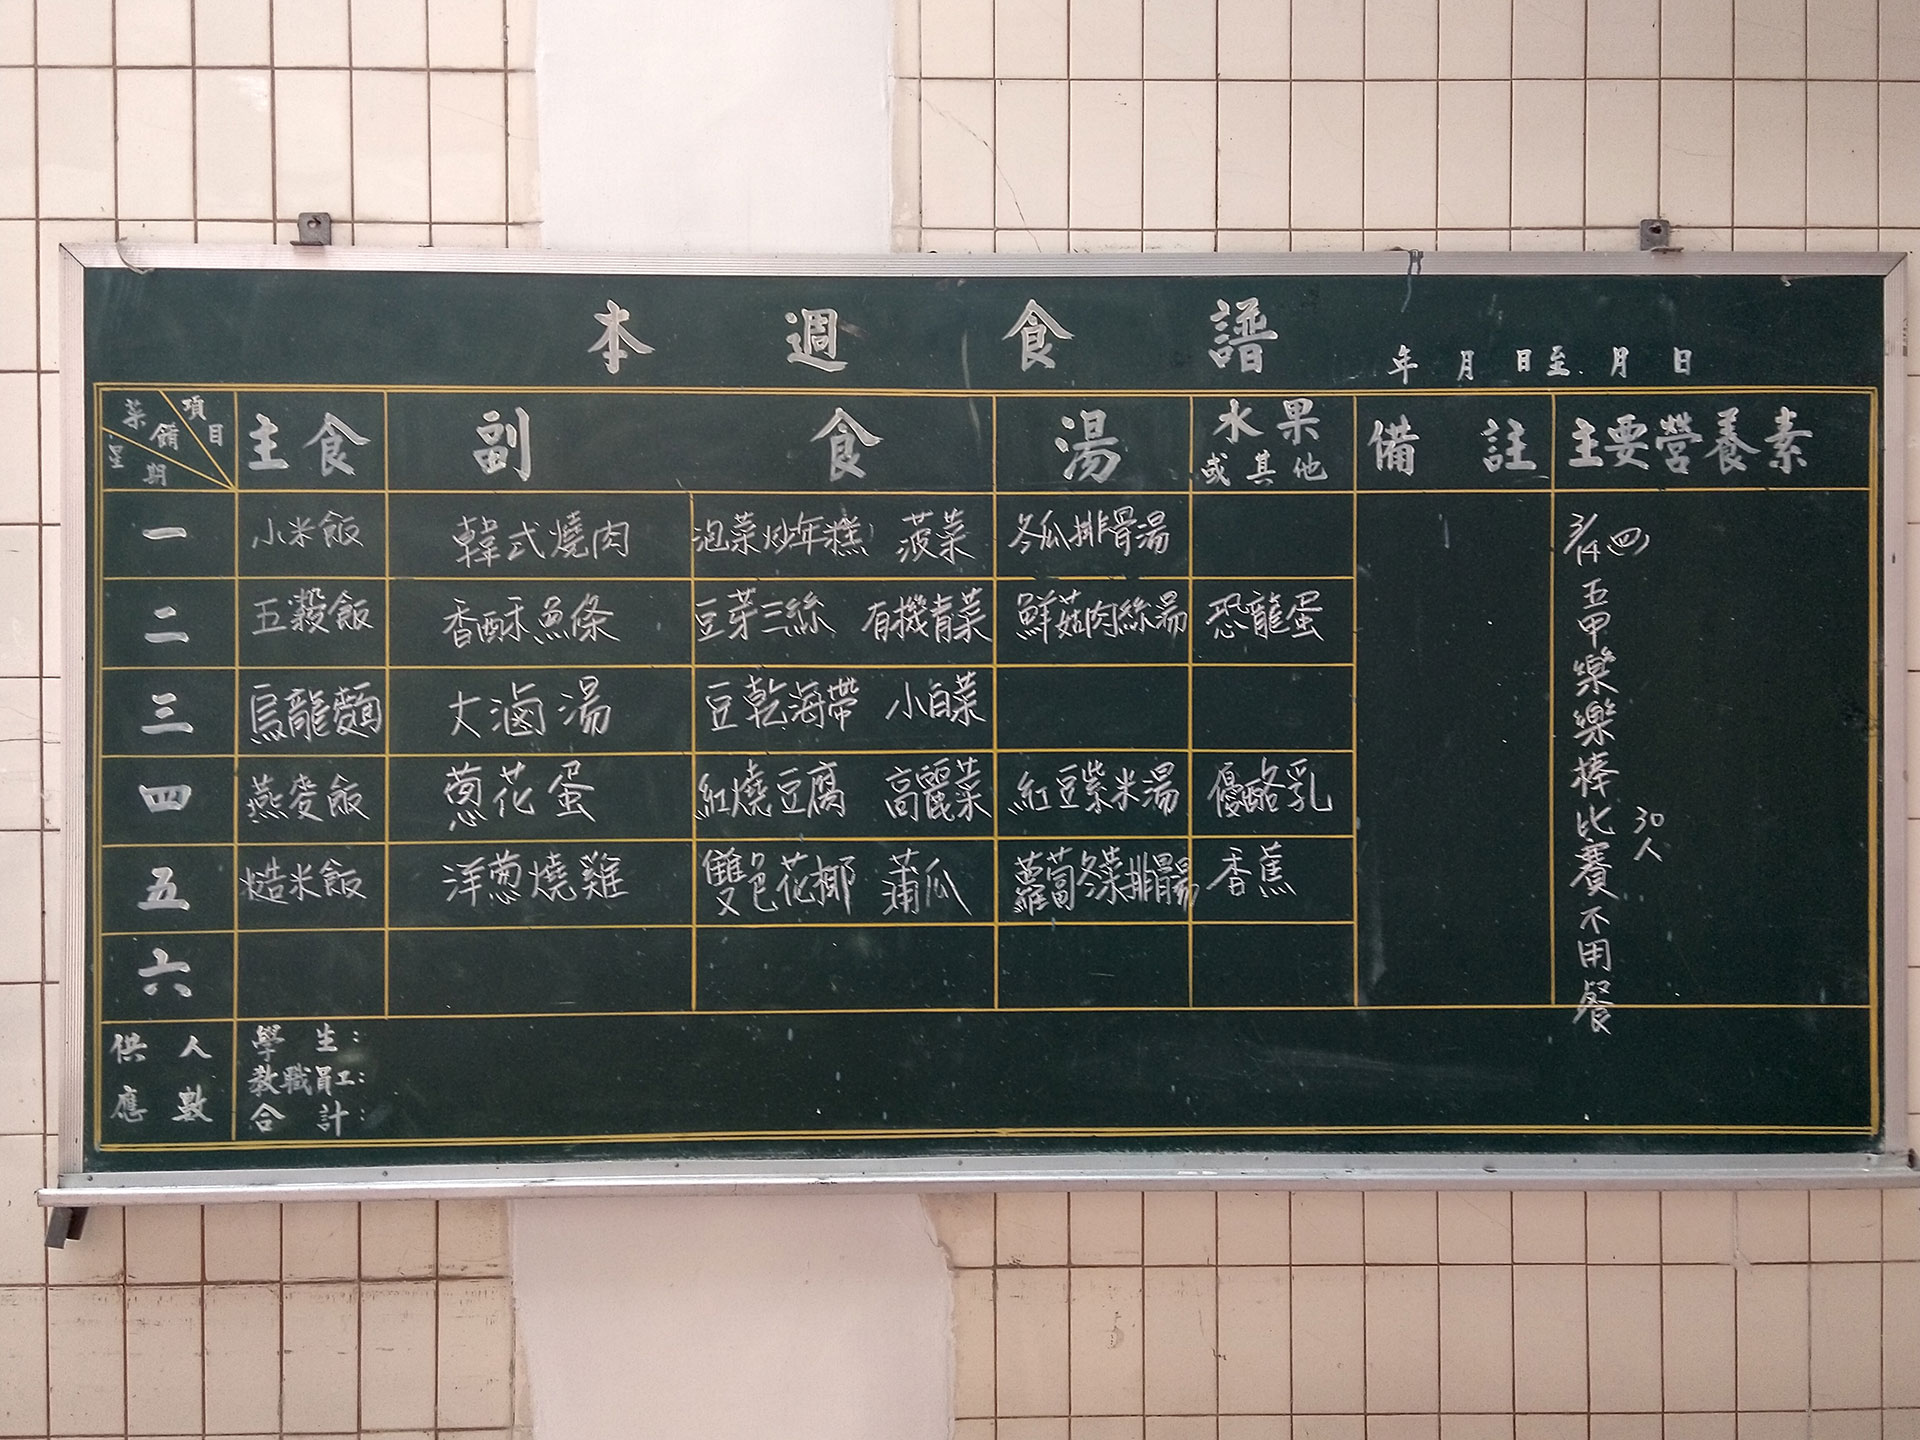 本週食譜 年 月 日至 月 日
菜餚 項目 星期 主食 副食 湯 水果或其他 備註 主要營養素
一 小米飯 韓式燒肉 泡菜炒年糕 菠菜 冬瓜排骨湯
二 五穀飯 香酥魚條 豆芽三絲 有機青菜 鮮菇肉絲湯 恐龍蛋
三 烏龍麵 大滷湯 豆乾海帶 小白菜
四 燕麥飯 蔥花蛋 紅燒豆腐 高麗菜 紅豆紫米湯 優酪乳
五 糙米飯 洋蔥燒雞 雙色花椰 蒲瓜 蘿蔔冬菜排骨湯 香蕉
六
3/14(四)
五甲樂樂棒比賽不用餐
30人
供應人數
學生:
教職員工:
合計: